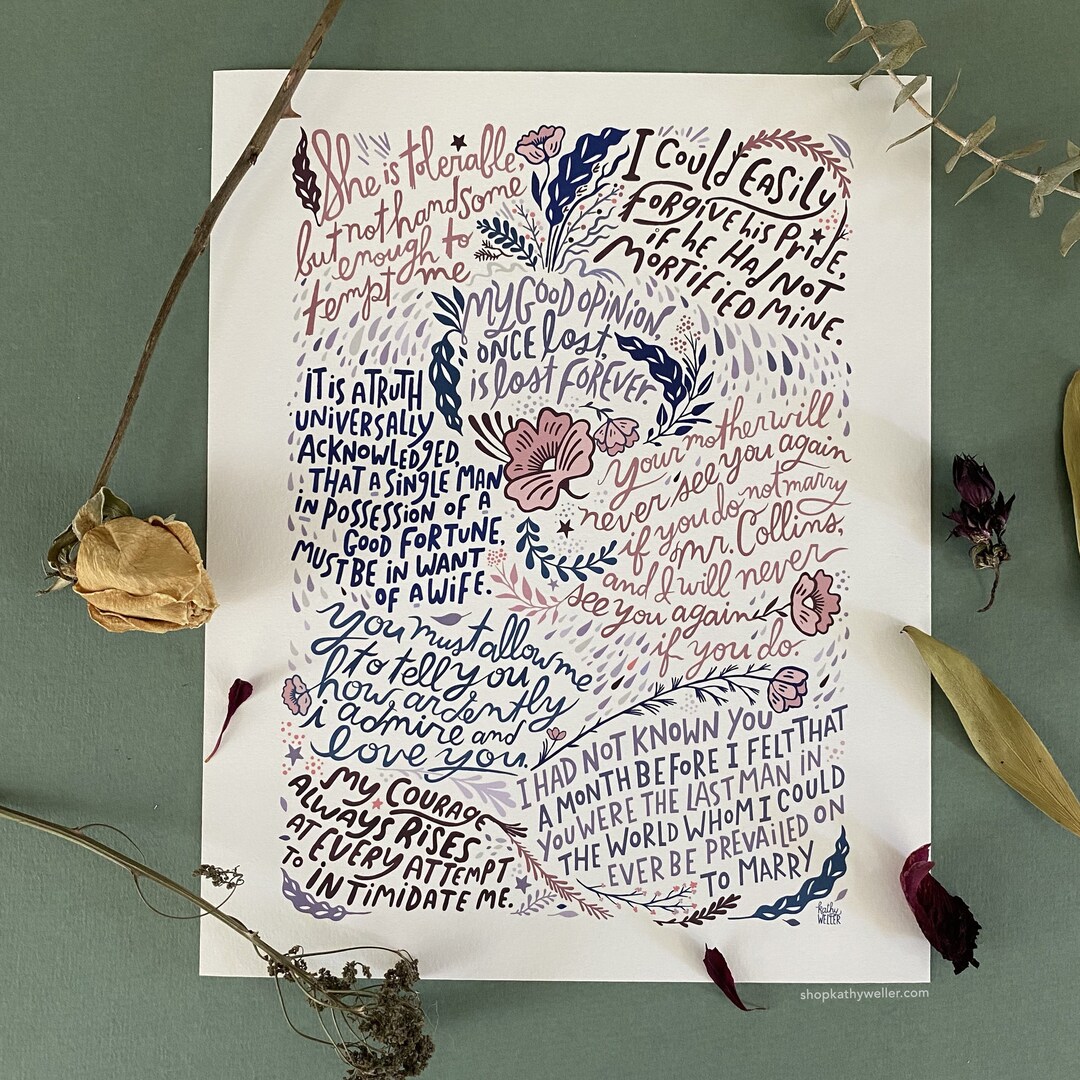 She is tolerable,
but not handsome
enough to
tempt me
I COULD EASILY
FORGIVE his PRIDE,
if he HAD NOT
MORTIFIED MINE.
MY GOOD OPINION
ONCE lost,
is lost FOREVER
IT IS A TRUTH
UNIVERSALLY
ACKNOWLEDGED,
THAT A SINGLE MAN
IN POSSESSION OF A
GOOD FORTUNE,
MUST BE IN WANT
OF A WIFE.
Your mother will
never see you again
if you do not marry
Mr. Collins,
and I will never
see you again
if you do.
You must allow me
to tell you
how ardently
i admire and
love you.
I HAD NOT KNOWN YOU
A MONTH BEFORE I FELT THAT
YOU WERE THE LAST MAN IN
THE WORLD WHOM I COULD
EVER BE PREVAILED ON
TO MARRY
MY COURAGE
ALWAYS RISES
AT EVERY ATTEMPT
TO INTIMIDATE ME.
kathy
WELLER
shopkathyweller.com